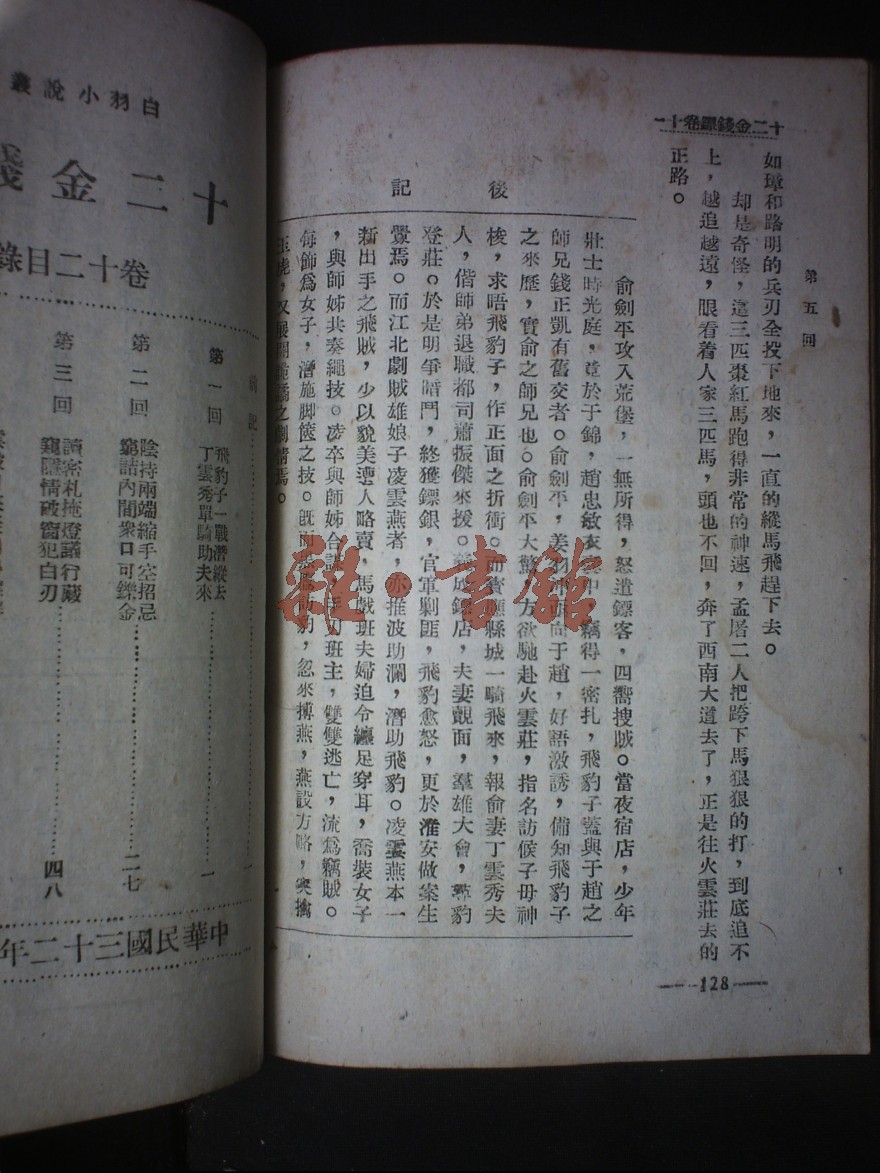 十二金錢鏢卷十一
第五回
如璋和路明的兵刃全投下地來，一直的縱馬飛趕下去。
却是奇怪，這三匹棗紅馬跑得非常的神速，孟屠二人把跨下馬狠狠的打，到底追不
上，越追越遠，眼看着人家三匹馬，頭也不回，奔了西南大道去了，正是往火雲莊去的
正路。
後記
俞劍平攻入荒堡，一無所得，怒遣鏢客，四嚮搜賊。當夜宿店，少年
壯士時光庭，竟於于錦，趙忠敏衣囊中，竊得一密扎，飛豹子蓋與于趙之
師兄錢正凱有舊交者。俞劍平，姜羽冲面向于趙，好語激誘，備知飛豹子
之來歷，實俞之師兄也。俞劍平大驚，方欲馳赴火雲莊，指名訪候子母神
梭，求晤飛豹子，作正面之折衝。而寶應縣城一騎飛來，報俞妻丁雲秀夫
人，偕師弟退職都司蕭振傑來援。義成鏢店，夫妻覿面，羣雄大會，尋豹
登莊。於是明爭暗鬥，終獲鏢銀，官軍剿匪，飛豹愈怒，更於淮安做案生
釁焉。而江北劇賊雄娘子凌雲燕者，亦推波助瀾，潛助飛豹。凌雲燕本一
新出手之飛賊，少以貌美遭人略賣，馬戲班夫婦迫令纏足穿耳，喬裝女子
，與師姊共奏繩技。凌卒與師姊合謀，手刃班主，雙雙逃亡，流爲竊賊。
每飾爲女子，潛施胠篋之技。既而燕豹，忽來搏燕，燕設方略，突擒
玉虎，又展開詭譎之劇情焉。
128
白羽小說叢
十二金錢
卷十二目錄
前記
第一回 飛豹子一戰潛縱去 丁雲秀單騎助夫來 一
第二回 陰持兩端縮手空招忌 窮詰內間衆口可鑠金 二七
第三回 讀密札掩燈議行藏 窺隱情破窗犯白刃 四八
中華民國三十二年
雜·書館